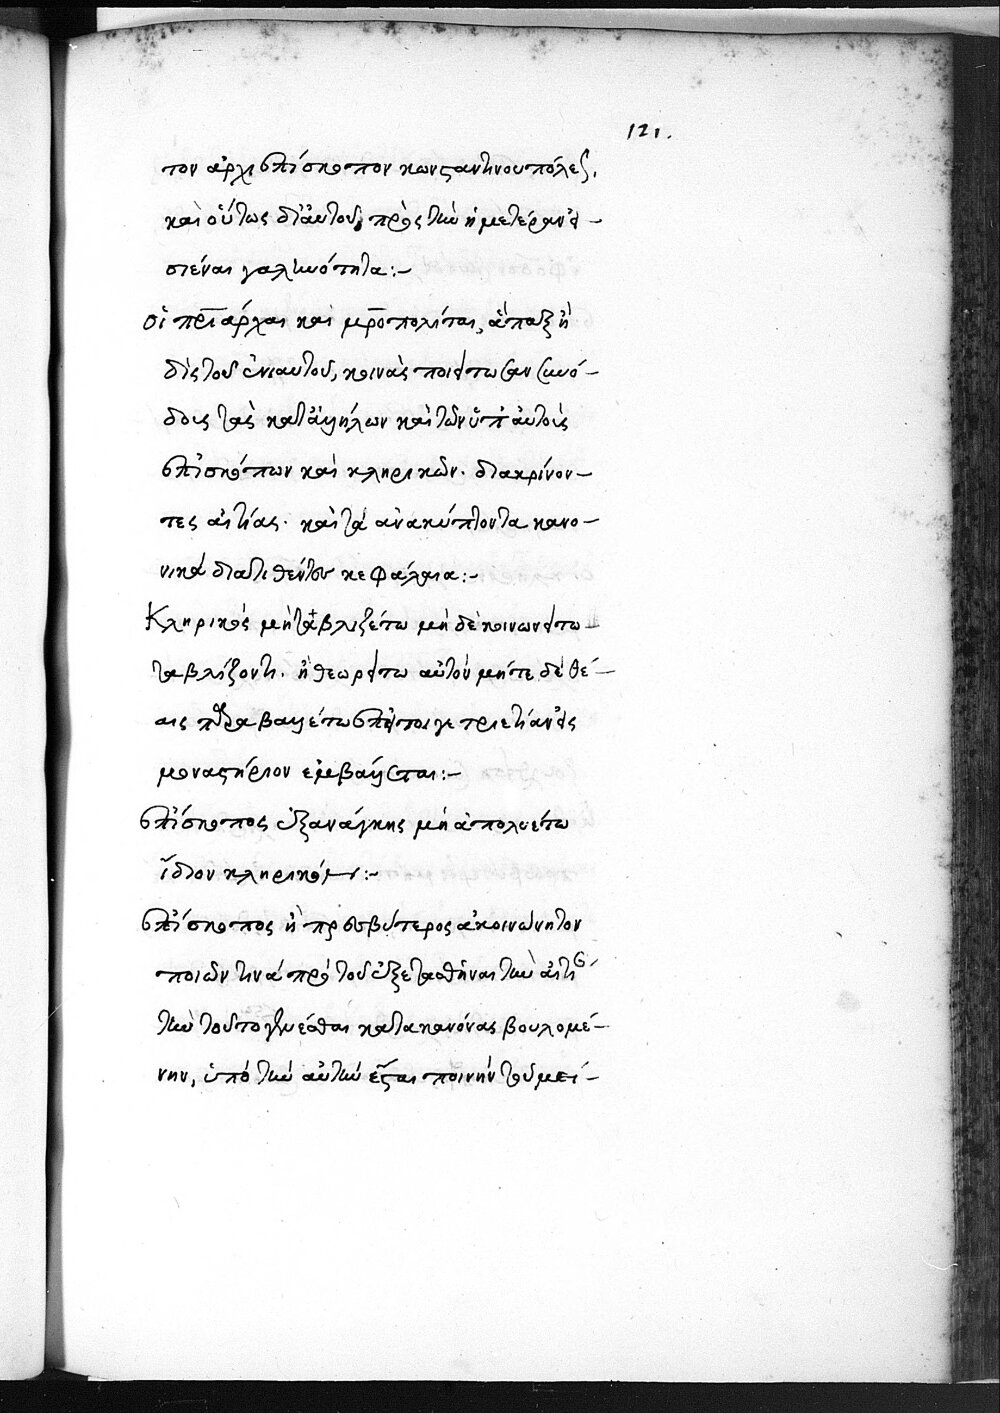 121.
τὸν ἀρχιεπίσκοπον κωνσταντινουπόλεως,
καὶ οὕτως δι' αὐτοῦ, πρὸς τὴν ἡμετέραν ἀ-
σιέναι γαληνότητα:-
οἱ πριάρχαι καὶ μροπολίται, ἅπαξ ἢ
δὶς τοῦ ἐνιαυτοῦ, κοινὰς ποιείτωσαν συνό-
δοις τὰς κατ' ἀλλήλων καὶ τῶν ὑπ' αὐτοὺς
ἐπισκόπων καὶ κληρικῶν. διακρίνον-
τες αἰτίας. καὶ τὰ ἀνακύπτοντα κανο-
νικὰ διατιθέντες κεφάλαια:-
Κληρικὸς μὴ ταβλιζέτω μὴ δὲ κοινωνείτω
ταβλίζοντι. ἢ θεωρείτω αὐτὸν μήτε δὲ θέ-
αις παραβαλλέτω ἐπεί τοι γε τριετίαν εἰς
μοναστήριον ἐμβαλλέσται:-
ἐπίσκοπος ἐξ ἀνάγκης μὴ ἀπολυέτω
ἴδιον κληρικόν:-
ἐπίσκοπος ἢ πρεσβύτερος ἀκοινώνητον
ποιῶν τινὰ πρὸ τοῦ ἐξετασθῆναι τὴν αἰτί
τὴν τοῦτο γενέσθαι κατὰ κανόνας βουλομέ-
νην, ὑπὸ τὴν αὐτὴν ἔσται ποινὴν τοῦ μεί-